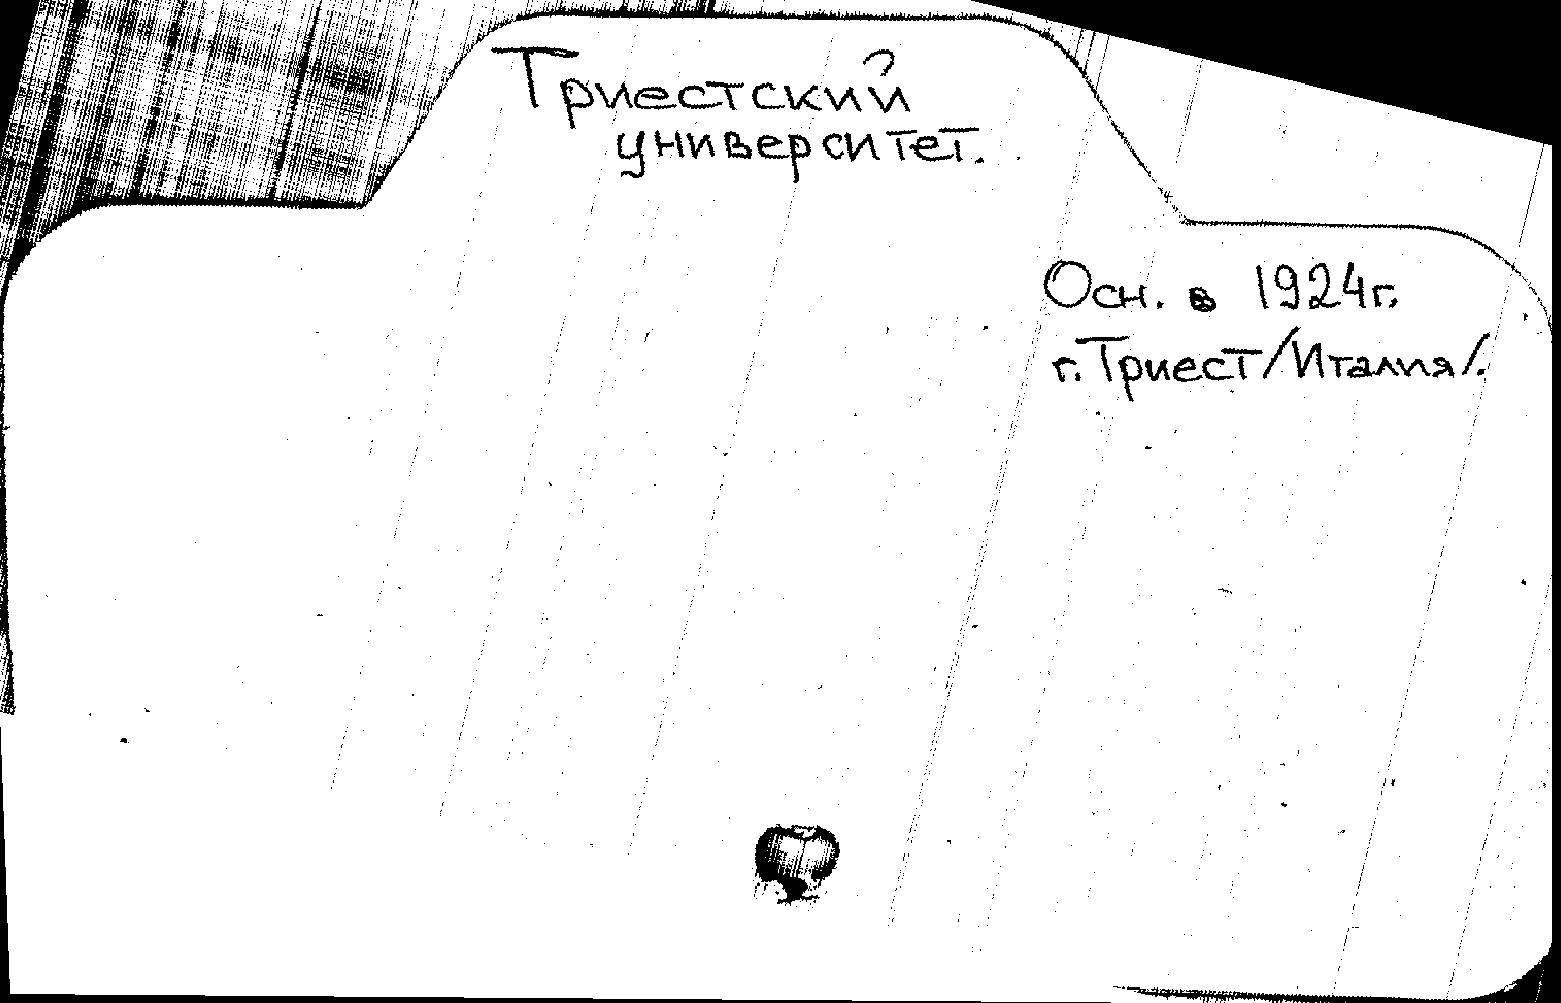 Триестский
университет.
Осн. в 1924г.
г. Триест /Италия/.